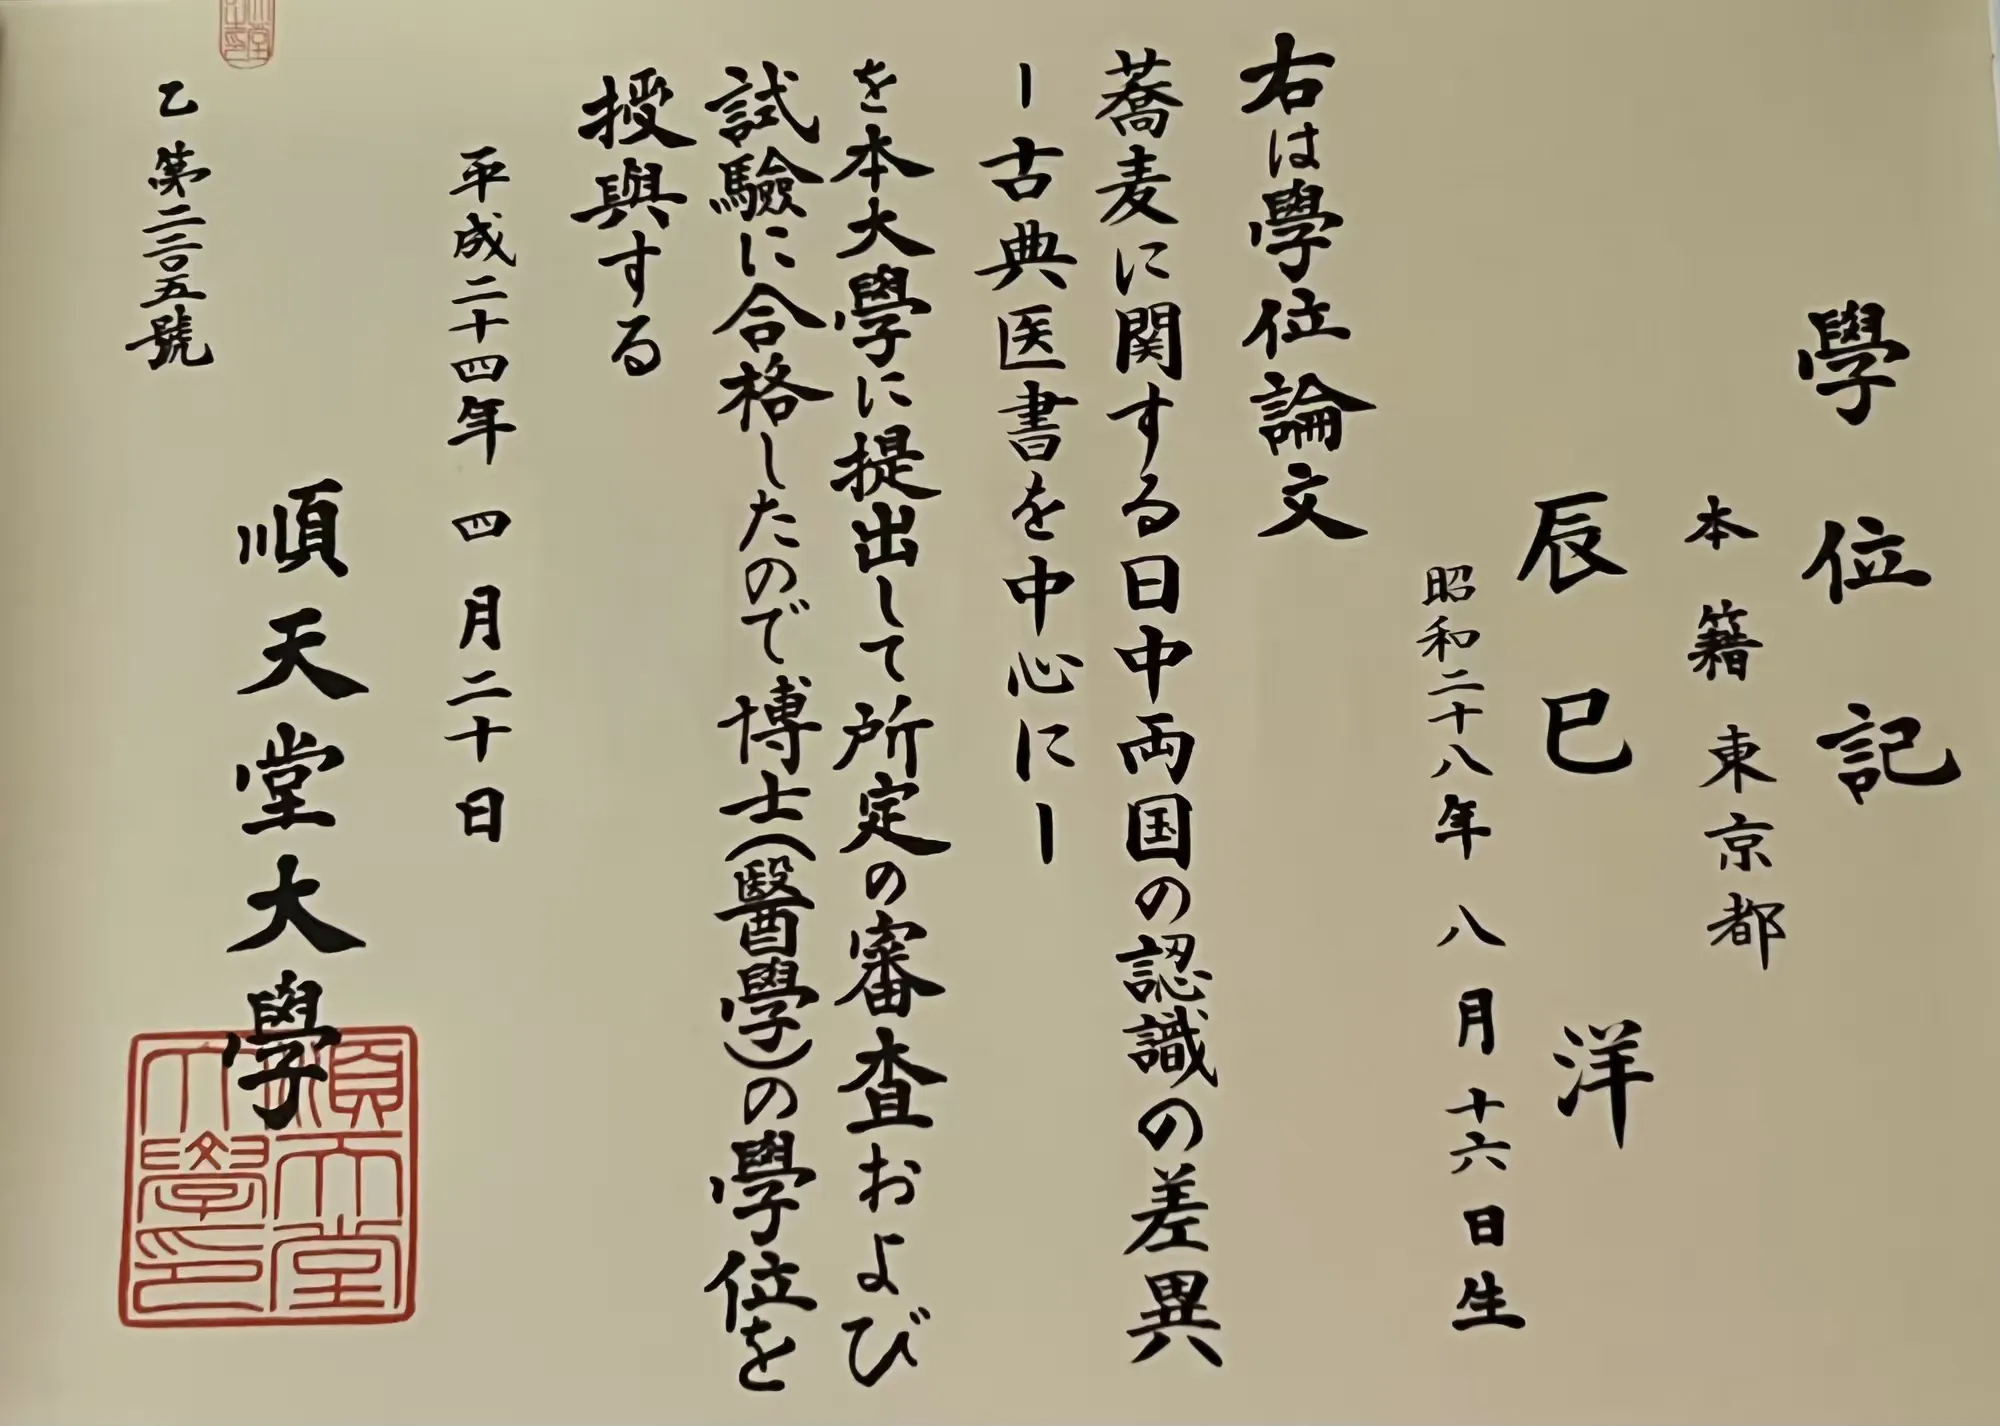 學位記
本籍 東京都
辰巳 洋
昭和二十八年 八月十六日生
右は學位論文
蕎麦に関する日中両国の認識の差異
ー古典医書を中心にー
を本大學に提出して所定の審査および
試驗に合格したので博士(醫學)の學位を
授與する
平成二十四年 四月二十日
順天堂大學
順天堂大學印
乙第二二〇五號